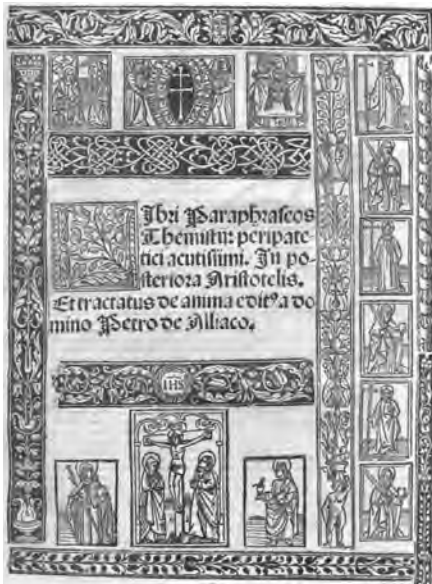 Libri Paraphraseos
Themistii: peripate-
tici acutissimi. In po-
steriora Aristotelis.
Et tractatus de anima edit⁹ a do
mino Petro de Alliaco.
IHS